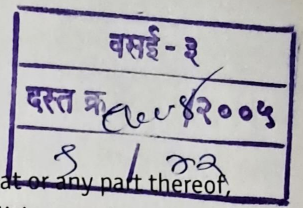 वसई - ३
दस्त क्र /२००५
९ / ४२
at or any part thereof,